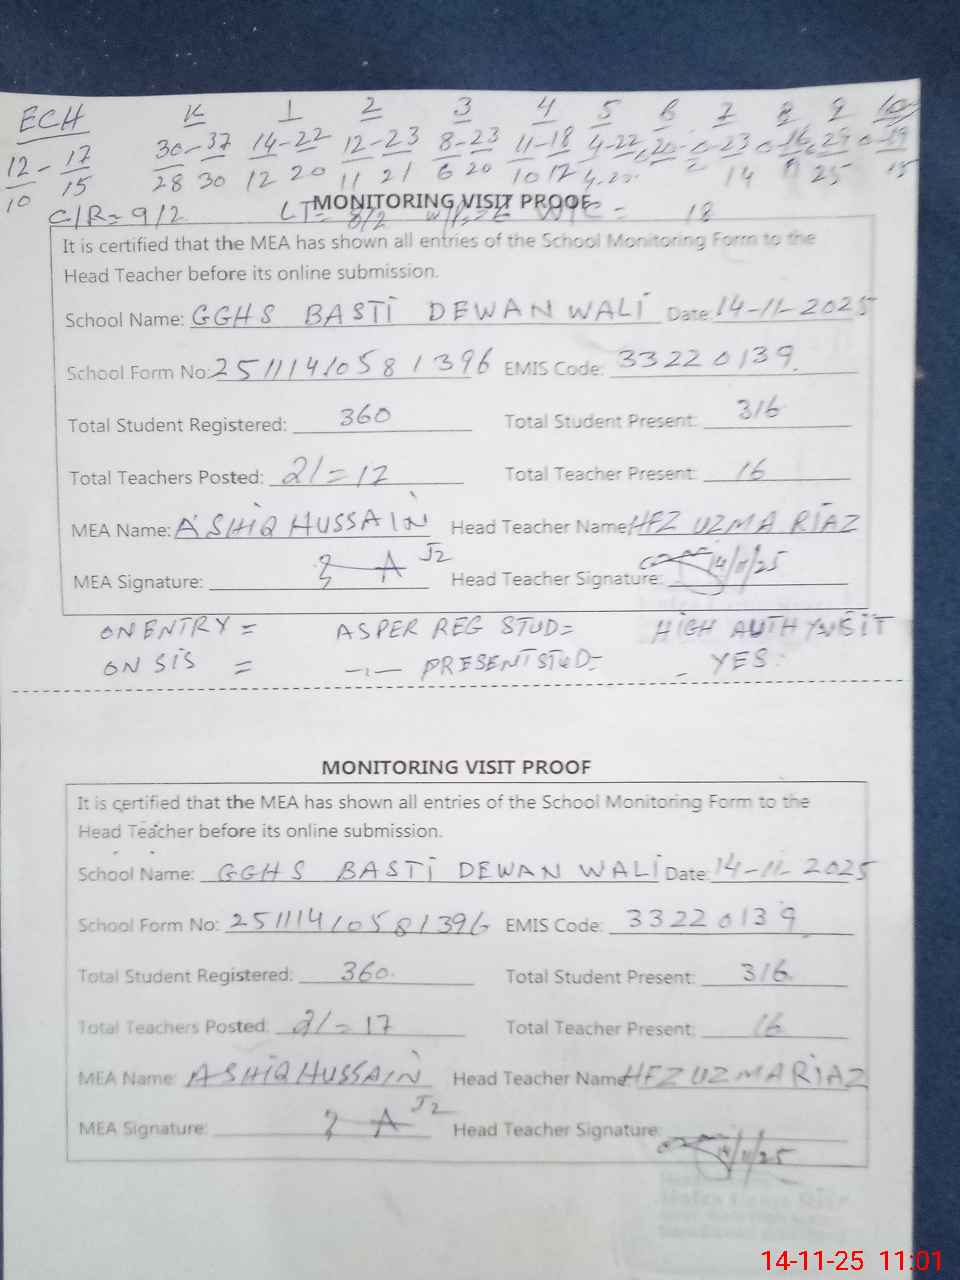 ECH K 1 2 3 4 5 6 7 8 9 10
12-17 30-37 14-22 12-23 8-23 11-18 4-22 0-20 0-23 0-16 0-29 0-19
10 15 28 30 12 20 11 21 6 20 10 17 14 25 15
C/R= 9/2 LT= 8/2 W/C= 18
MONITORING VISIT PROOF
It is certified that the MEA has shown all entries of the School Monitoring Form to the
Head Teacher before its online submission.
School Name: GGHS BASTI DEWAN WALI Date: 14-11-2025
School Form No: 25111410581396 EMIS Code: 33220139
Total Student Registered: 360 Total Student Present: 316
Total Teachers Posted: 21=17 Total Teacher Present: 16
MEA Name: ASHIQ HUSSAIN Head Teacher Name: HFZ UZMA RIAZ
MEA Signature: Head Teacher Signature: 14/11/25
ON ENTRY = AS PER REG STUD= HIGH AUTHY VISIT
ON SIS = -,- PRESENT STUD= - YES
MONITORING VISIT PROOF
It is certified that the MEA has shown all entries of the School Monitoring Form to the
Head Teacher before its online submission.
School Name: GGHS BASTI DEWAN WALI Date: 14-11-2025
School Form No: 25111410581396 EMIS Code: 33220139
Total Student Registered: 360 Total Student Present: 316
Total Teachers Posted: 21=17 Total Teacher Present: 16
MEA Name: ASHIQ HUSSAIN Head Teacher Name: HFZ UZMA RIAZ
MEA Signature: Head Teacher Signature: 14/11/25
14-11-25 11:01